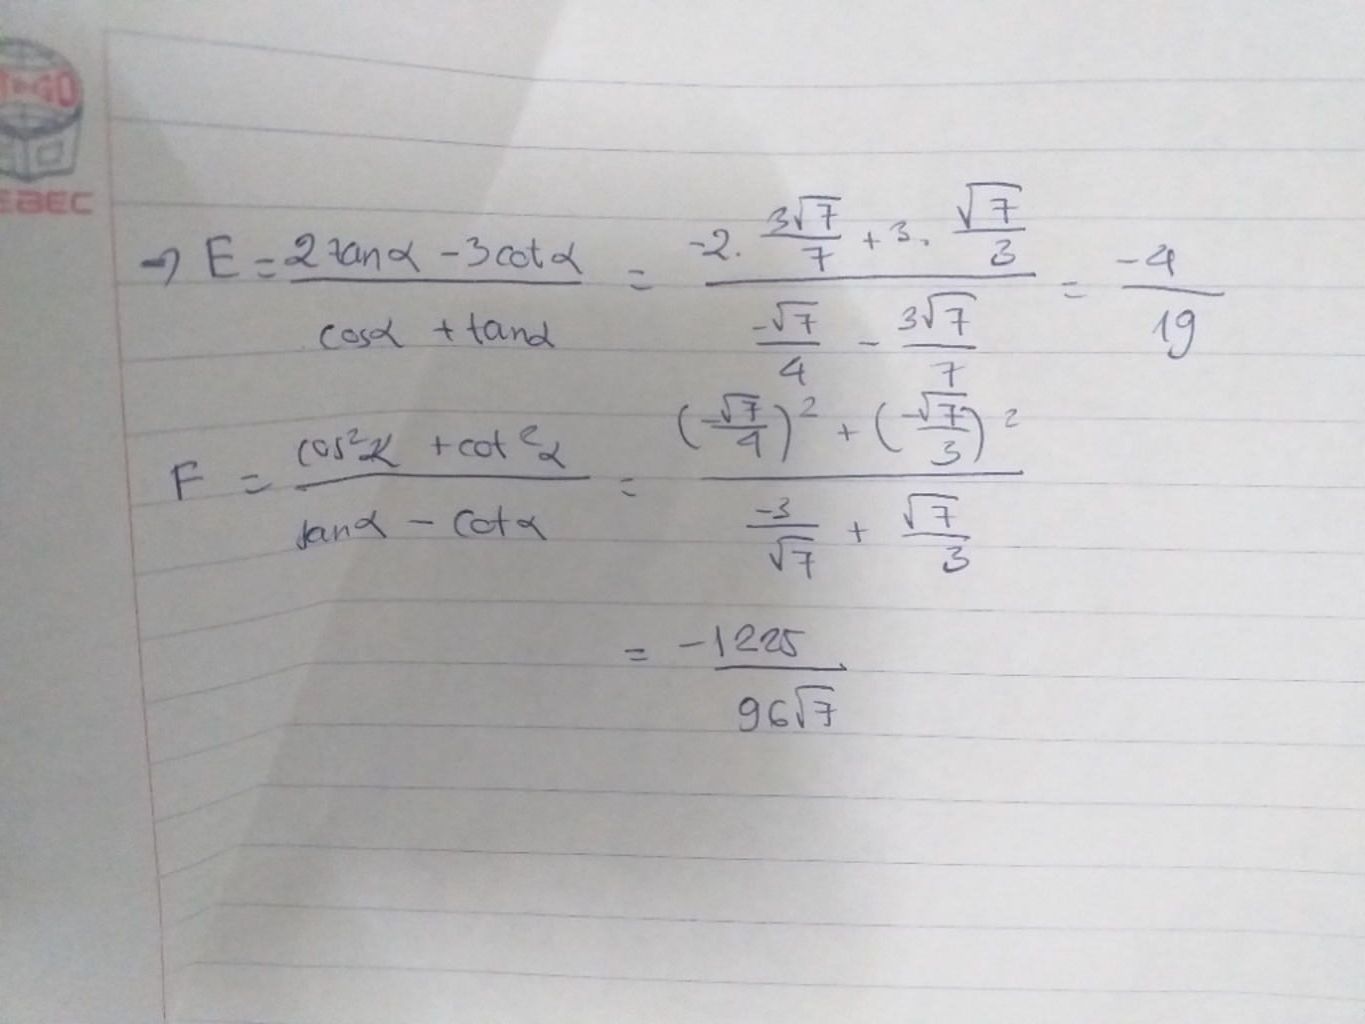 EBEC
→ E = (2tanα - 3cotα)/(cosα + tanα) = (-2. 3√7/7 + 3. √7/3)/(-√7/4 - 3√7/7) = -4/19
F = (cos²α + cot²α)/(tanα - cotα) = ((-√7/4)² + (-√7/3)²)/(-3/√7 + √7/3)
= -1225/96√7